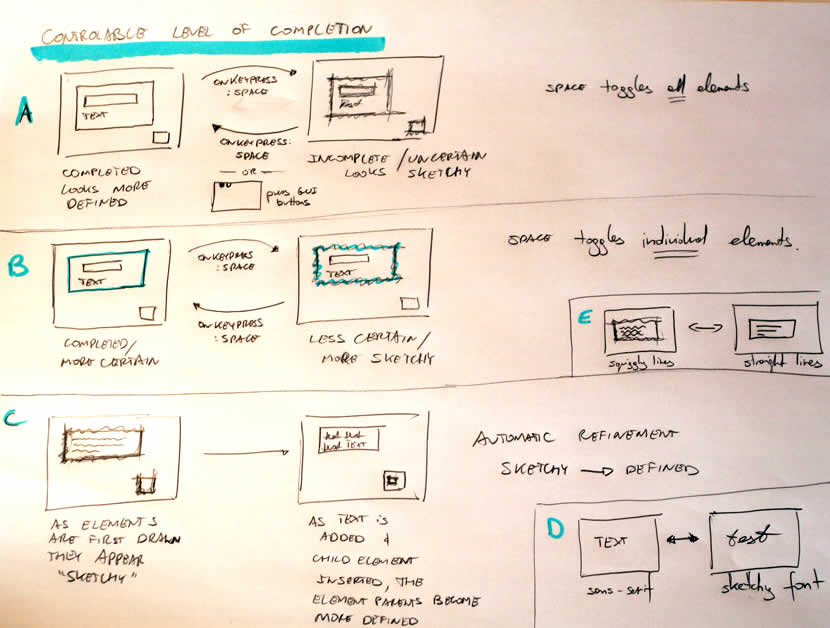 CONTROLABLE LEVEL OF COMPLETION
A
TEXT
COMPLETED
LOOKS MORE
DEFINED
ONKEYPRESS
: SPACE
ONKEYPRESS:
SPACE
— OR —
press GUI
buttons
text
INCOMPLETE / UNCERTAIN
LOOKS SKETCHY
SPACE toggles all elements
B
TEXT
COMPLETED/
MORE CERTAIN
ONKEYPRESS
: SPACE
ONKEYPRESS
: SPACE
TEXT
LESS CERTAIN/
MORE SKETCHY
SPACE toggles individual elements.
E
squiggly lines
straight lines
C
AS ELEMENTS
ARE FIRST DRAWN
THEY APPEAR
"SKETCHY"
text text
text TEXT
AS TEXT IS
ADDED &
CHILD ELEMENT
INSERTED, THE
ELEMENT PARENTS BECOME
MORE DEFINED
AUTOMATIC REFINEMENT
SKETCHY → DEFINED
D
TEXT
sans-serif
text
sketchy font